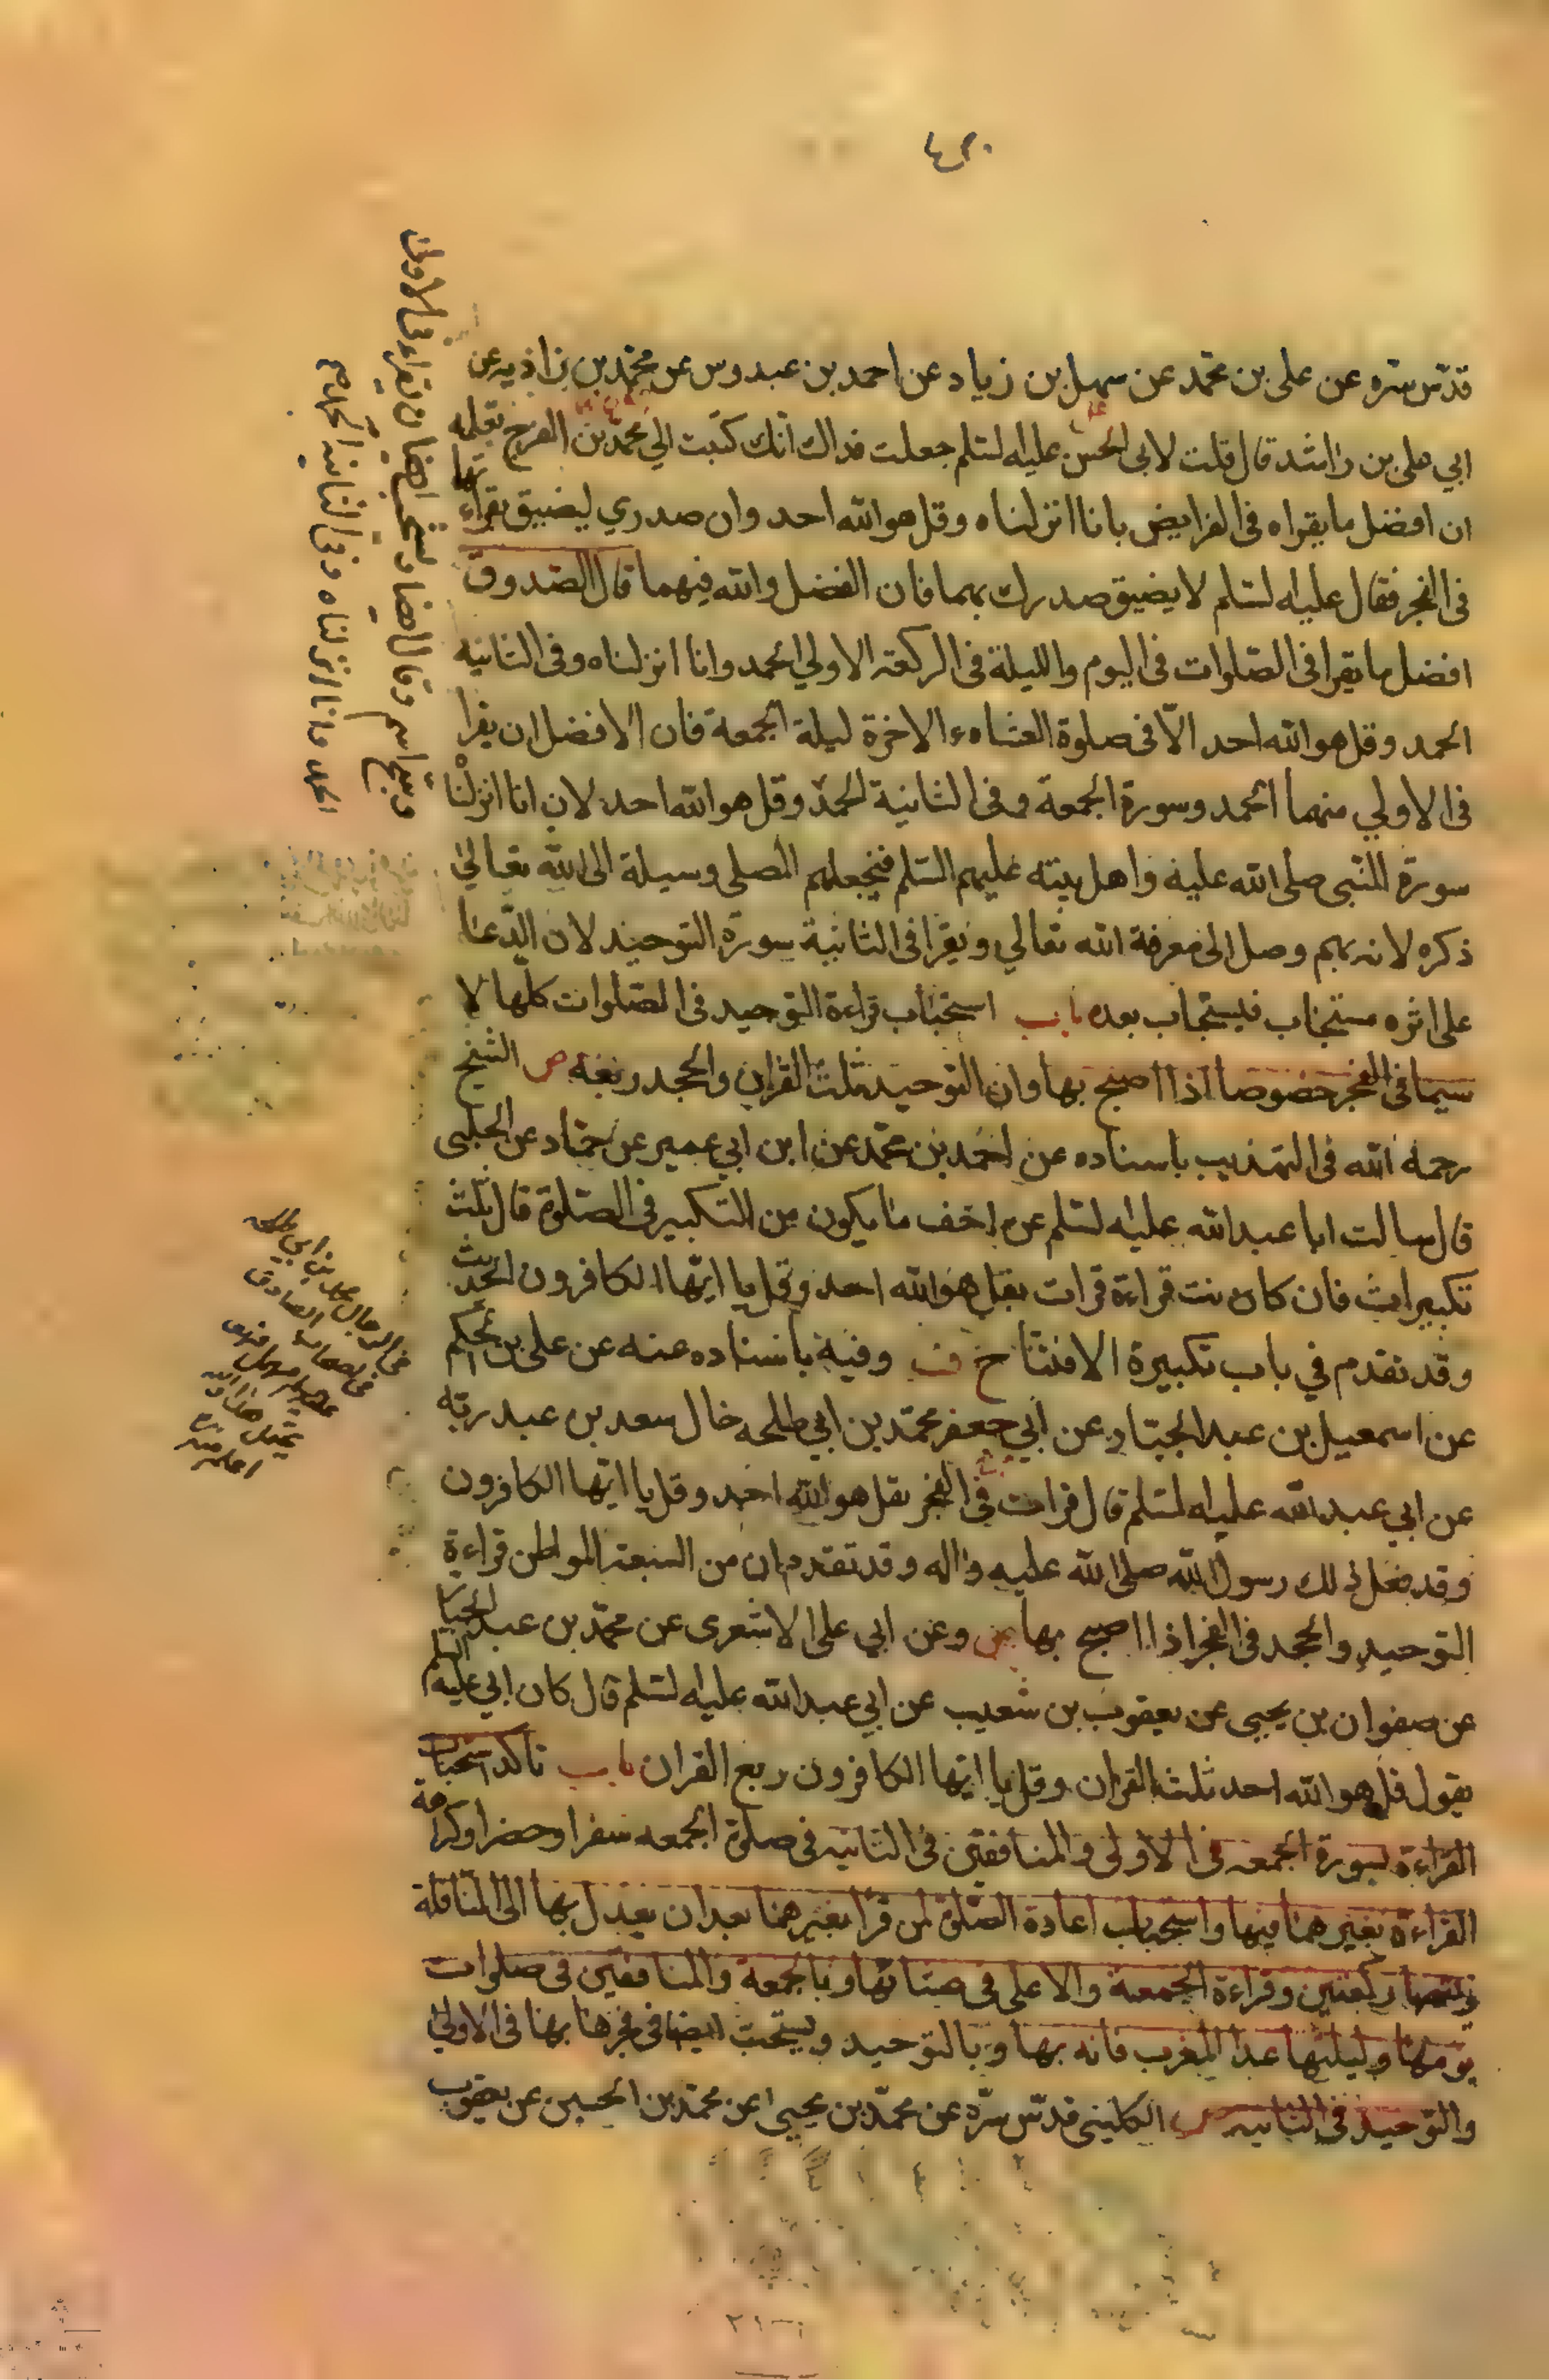 قدّس سّره عن على بن محمّد عن سهل بن زياد عن احمد بن عبدوس عن محمّد بن زاذيه عن
ابي على بن راشد قال قلت لابى الحسن عليه لسّلم جعلت فداك انّك كتبت الي محمّد بن الفرج تعلمه
ان افضل ما يقراه فى الفرايض بانا انزلناه وقل هو الله احد وان صدري ليضيق بقراءتهما
فى الفجر فقال عليه لسّلم لا يضيق صدرك بهما فان الفضل والله فيهما قال الصّدوق
افضل ما يقرا فى الصّلوات فى اليوم والليلة فى الركعة الاولي الحمد وانا انزلناه وفى الثانيه
الحمد وقل هو الله احد الّا فى صلوة العشاء الاخرة ليلة الجمعة فان الافضل ان يقرا
فى الاولي منهما الحمد وسورة الجمعة وفى الثانية الحمد وقل هو الله احد لان انا انزلنا
سورة النّبى صلى الله عليه واهل بيته عليهم السّلم فيجعلهم المصلى وسيلة الى الله تعالي
ذكره لانه بهم وصل الى معرفة الله تعالي ويقرا فى الثانية سورة التوحيد لان الدّعا
على اثره مستجاب فيستجاب بعده باب استحباب قراءة التوحيد فى الصّلوات كلّها لا
سيما فى الفجر خصوصا اذا اصبح بها وان التوحيد ثلث القران والجحد ربعه ص الشيخ
رحمه الله فى التهذيب باسناده عن احمد بن محمّد عن ابن ابي عمير عن حمّاد عن الحلبى
قال سالت ابا عبد الله عليه لسّلم عن اخف ما يكون من التكبير فى الصّلوة قال ثلث
تكبيرات فان كانت قراءة قرات بقل هو الله احد وقل يا ايّها الكافرون الحديث
وقد تقدم في باب تكبيرة الافتتاح ف وفيه باسناده عنه عن على بن الحكم
عن اسمعيل بن عبد الجبّار عن ابي جعفر محمّد بن ابي طلحه خال سعد بن عبد ربّه
عن ابي عبد الله عليه لسّلم قال قرات فى الفجر بقل هو الله احد وقل يا ايّها الكافرون
وقد فعل ذلك رسول الله صلى الله عليه واله وقد تقدم ان من السبعة المواطن قراءة
التوحيد والجحد فى الفجر اذا اصبح بها ص وعن ابي على الاشعرى عن محمّد بن عبد الجبار
عن صفوان بن يحيى عن يعقوب بن شعيب عن ابي عبد الله عليه لسّلم قال كان ابي عليه السلم
يقول قل هو الله احد ثلث القران وقل يا ايّها الكافرون ربع القران باب تاكد استحباب
القراءة بسورة الجمعه فى الاولى والمنافقين فى الثانيه فى صلوة الجمعه سفرا وحضرا وكراهة
القراءة بغيرهما فيها واستحباب اعادة الصّلوة لمن قرا بغيرهما بعد ان يعدل بها الى النافلة
ركعتين وقراءة الجمعة والاعلى فى وبالجمعة والمنافقين فى صلوات
يومها وليلتها عدا المغرب فانه بها وبالتوحيد ويستحب ايضا فى فجرها بها فى الاولى
والتّوحيد فى الثانيه ص الكلينى قدّس سّره عن محمّد بن يحيى عن محمّد بن الحسين عن يعقوب